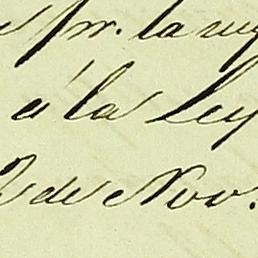 pr. la
á la ley
2 de Nov.